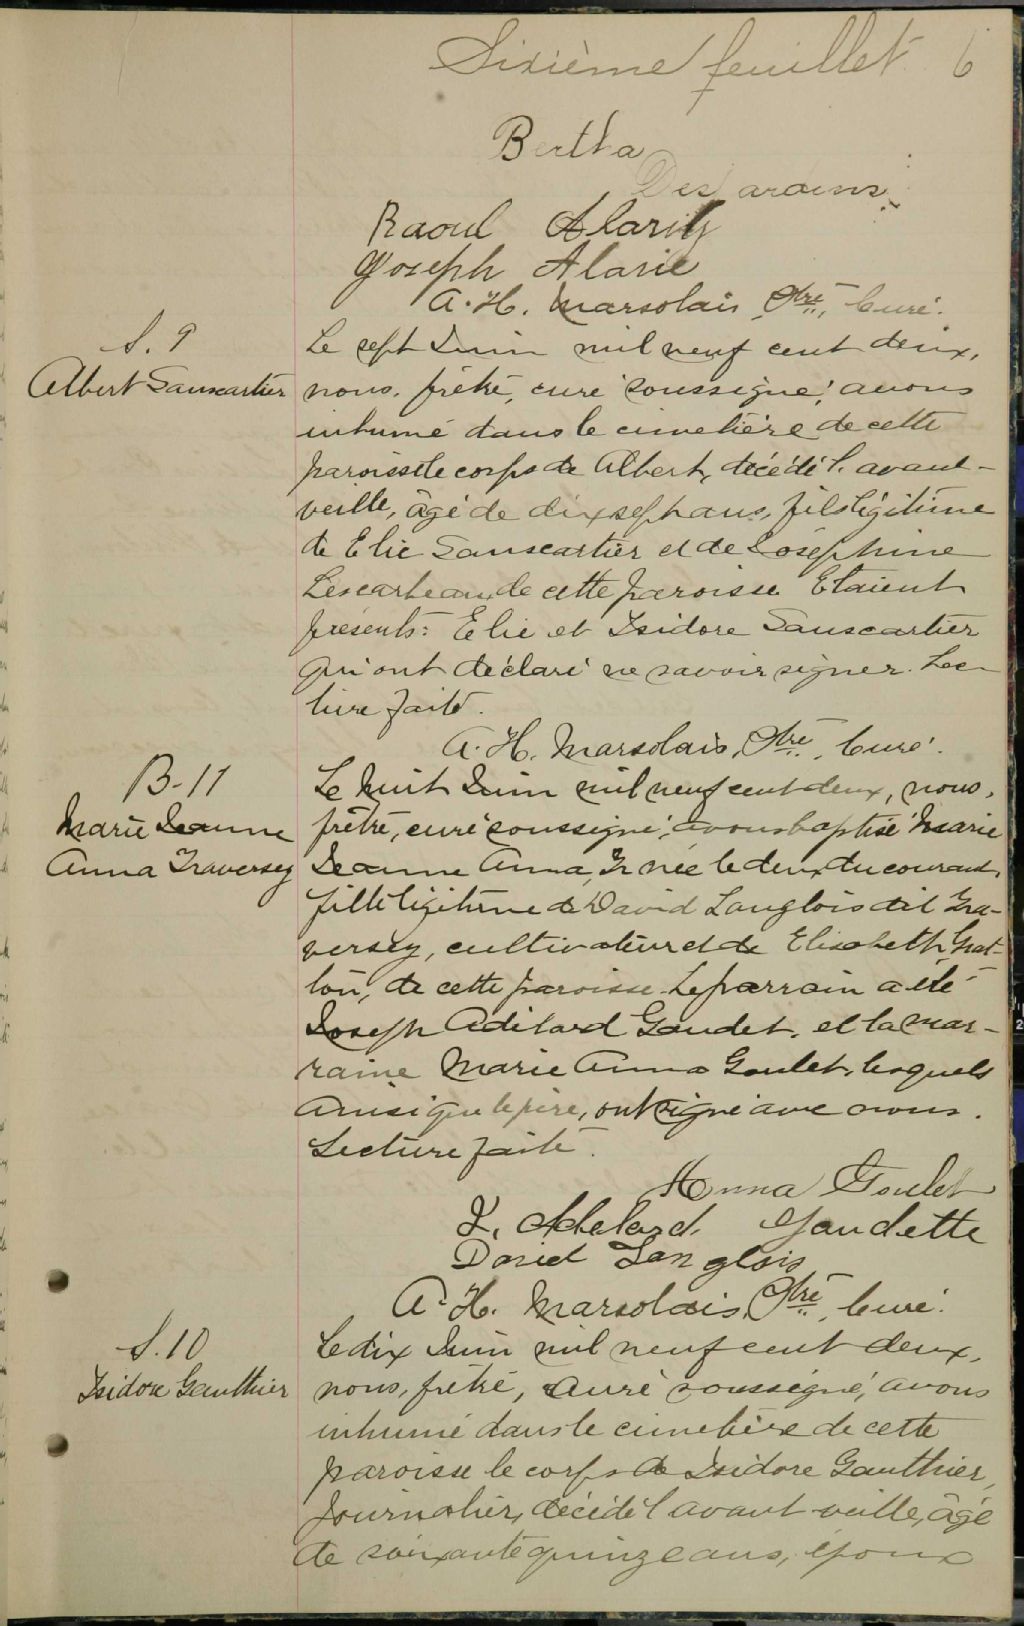 Sixième feuillet 6
Bertha
Desjardins
Raoul Alarie
Joseph Alarie
A. H. Marsolais, Ptre, Curé.
S. 9
Albert Sanscartier
Le sept Juin mil neuf cent deux,
nous, prêtre, curé soussigné, avons
inhumé dans le cimetière de cette
paroisse le corps de Albert, décédé l'avant-
veille, âgé de dix sept ans, fils légitime
de Elie Sanscartier et de Joséphine
Lescarbeau, de cette paroisse. Etaient
présents: Elie et Isidore Sanscartier
qui ont déclaré ne savoir signer. Lec-
ture faite.
A. H. Marsolais, Ptre, Curé.
B-11
Marie Jeanne
Anna Traversey
Le huit Juin mil neuf cent deux, nous,
prêtre, curé soussigné, avons baptisé Marie
Jeanne Anna, née le deux du courant,
fille légitime de David Langlois dit Tra-
versey, cultivateur et de Elisabeth Grat-
ton, de cette paroisse. Le parrain a été
Joseph Adélard Gaudet, et la mar-
raine Marie Anna Goulet, lesquels
ainsi que le père, ont signé avec nous.
Lecture faite.
Anna Goulet
J. Adelard Gaudette
David Langlois
A. H. Marsolais, Ptre, Curé.
S. 10
Isidore Gauthier
Le dix Juin mil neuf cent deux,
nous, prêtré, curé soussigné, avons
inhumé dans le cimetière de cette
paroisse le corps de Isidore Gauthier,
journalier, décédé l'avant veille, âgé
de soixante quinze ans, époux